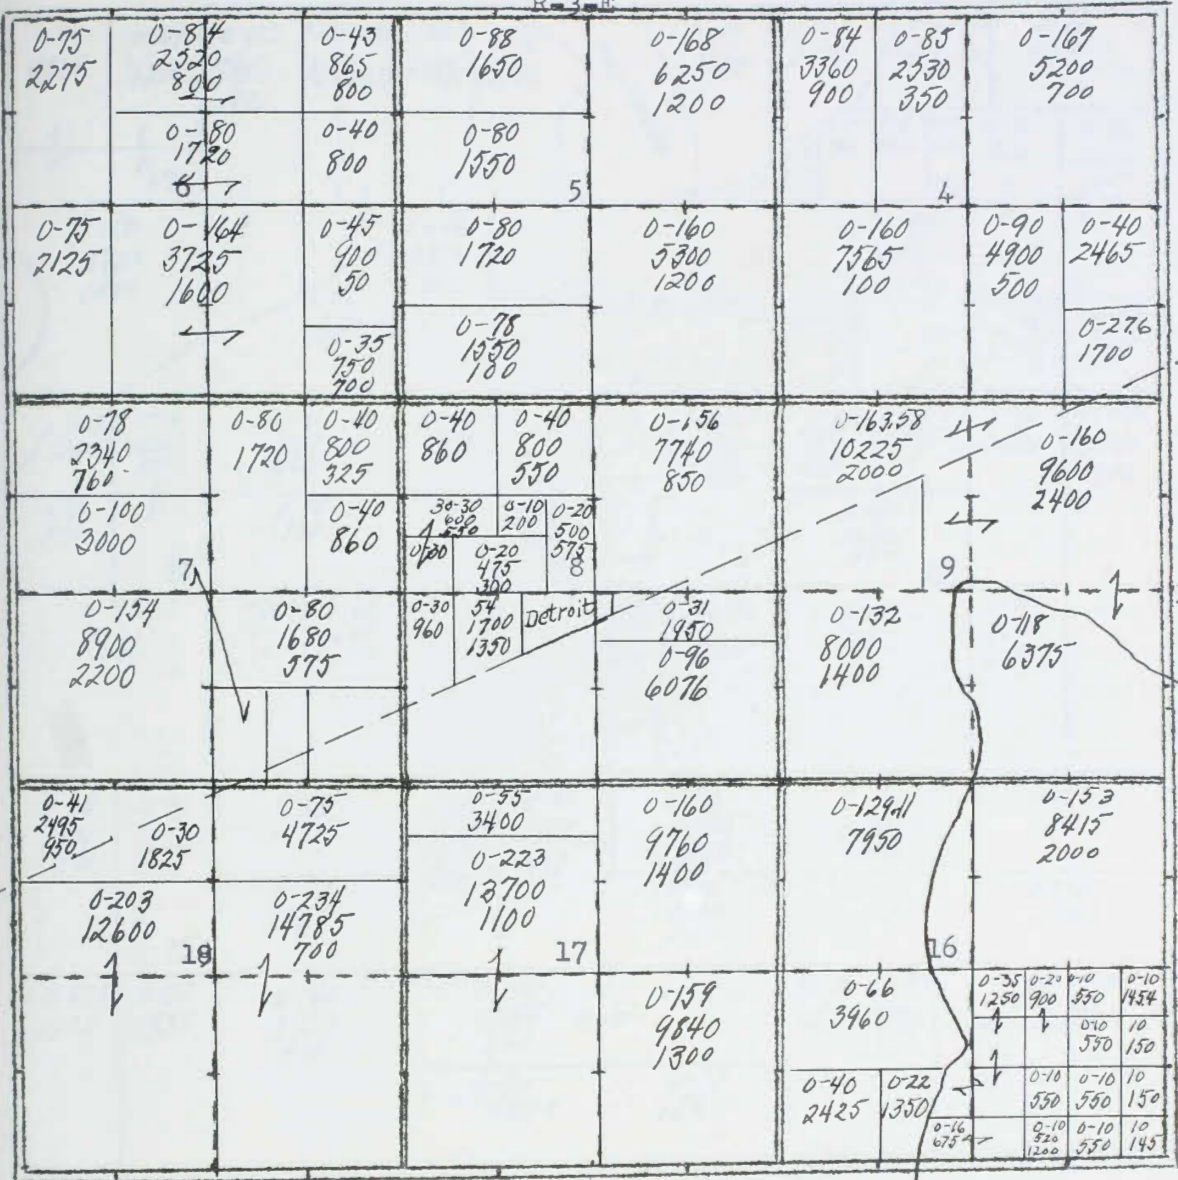 R-3-E
0-75
2275
0-84
2520
800
0-43
865
800
0-88
1650
0-168
6250
1200
0-84
3360
900
0-85
2530
350
0-167
5200
700
0-80
1720
6
0-40
800
0-80
1550
5
4
0-75
2125
0-164
3725
1600
0-45
900
50
0-80
1720
0-160
5300
1200
0-160
7565
100
0-90
4900
500
0-40
2465
0-35
750
700
0-78
1550
100
0-27.6
1700
0-78
2340
760
0-80
1720
0-40
800
325
0-40
860
0-40
800
550
0-156
7740
850
0-163.58
10225
2000
0-160
9600
2400
0-100
3000
0-40
860
30-30
600
550
0-10
200
0-20
500
575
0-20
475
300
7
8
9
0-154
8900
2200
0-80
1680
575
0-30
960
54
1700
1350
Detroit
0-31
1950
0-96
6076
0-132
8000
1400
0-118
6375
0-41
2495
950
0-30
1825
0-75
4725
0-55
3400
0-160
9760
1400
0-129.11
7950
0-153
8415
2000
0-203
12600
0-234
14785
700
0-223
13700
1100
18
17
16
0-159
9840
1300
0-66
3960
0-35
1250
0-20
900
0-10
550
0-10
1454
0-10
550
10
150
0-40
2425
0-22
1350
0-10
550
0-10
550
10
150
0-16
675
0-10
520
1200
0-10
550
10
145